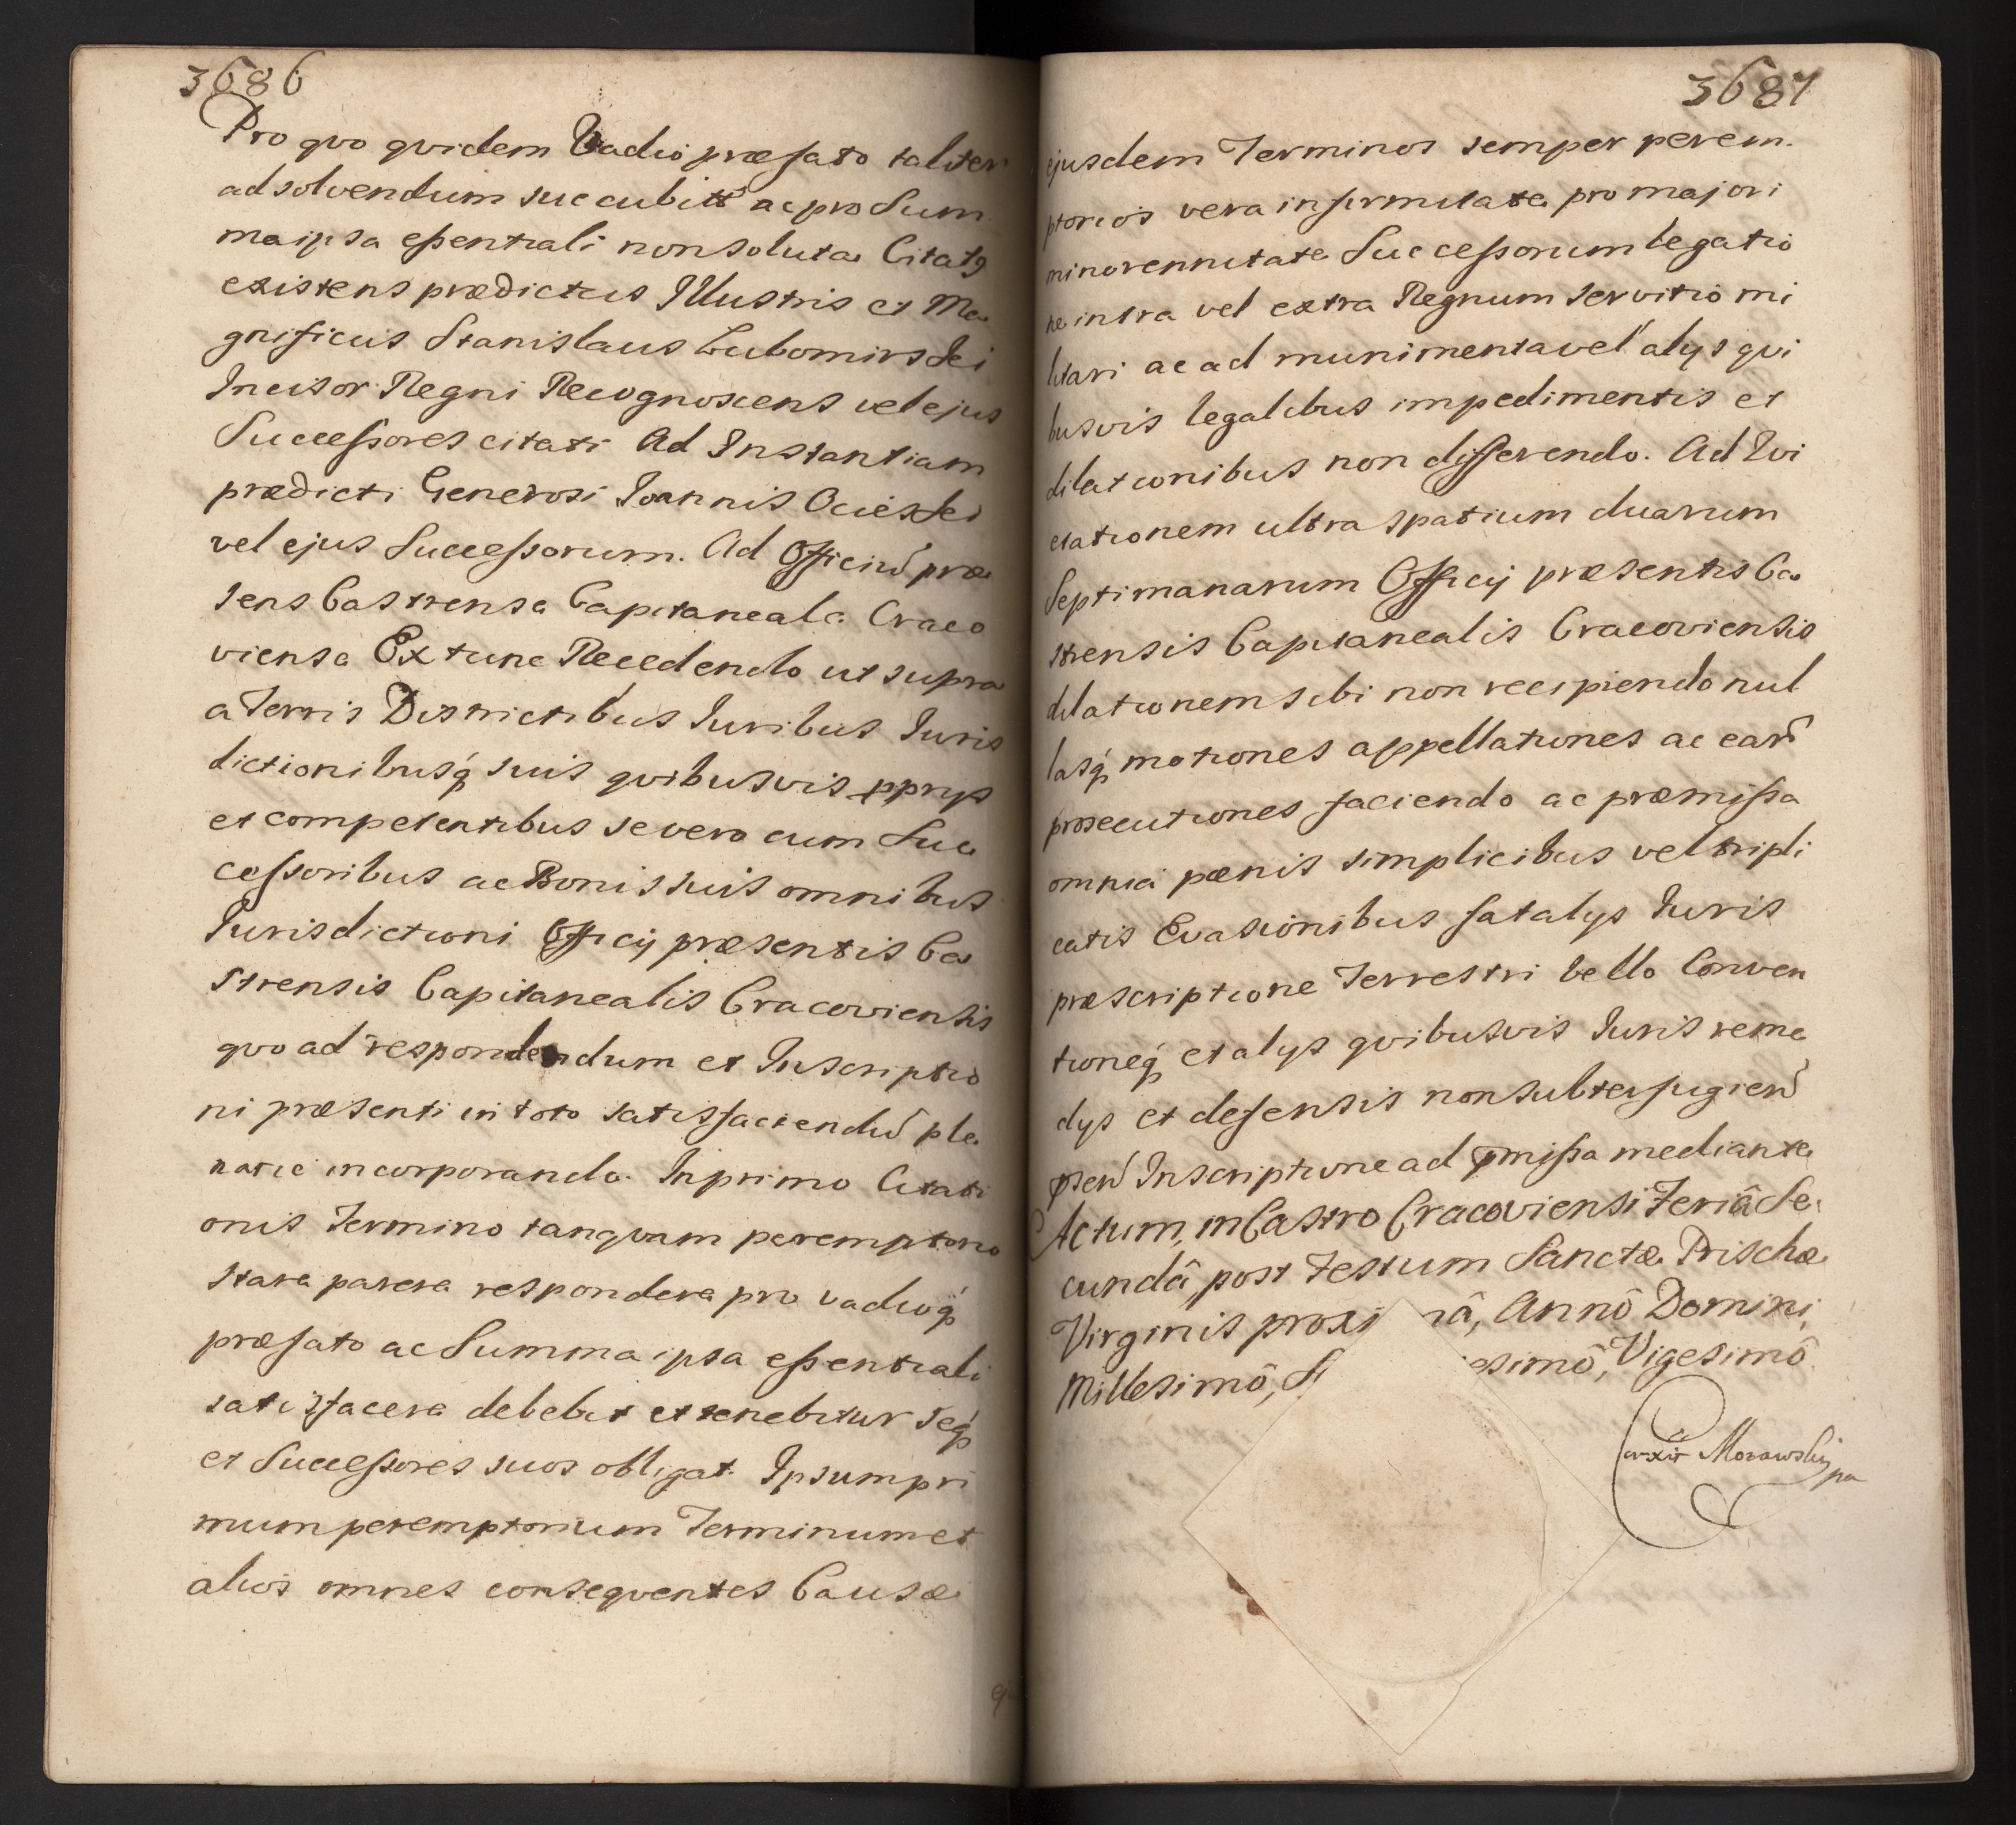 3686
Pro qvo qvidem Vadio præfato taliter
ad solvendum succubitt ac pro Sum
ma ipsa eßentiali non soluta Citatꝯ
existens prædictus Illustris et Ma
gnificus Stanislaus Lubomirski
Incisor Regni Recognoscens vel ejus
Succeßores citati Ad Instantiam
prædicti Generosi Joannis Ocieski
vel ejus Succeßorum. Ad Officiũ præ
sens Castrense Capitaneale Craco
viense Ex tunc Recedendo ut supra
a Terris Districtibus Iuribus Iuris
dictionibusq́ suis qvibusvis ppriys
et competentibus se vero cum Suc
ceßoribus ac Bonis suis omnibus
Iurisdictioni Officij præsentis Ca
strensis Capitanealis Cracoviensis
qvo ad respondendum et Inscriptio
ni præsenti in toto satisfaciendũ ple
narie incorporando. In primo Citati
onis Termino tanqvam peremptorio
stare parere respondere pro vadioq́
præfato ac Summa ipsa eßentiali
satisfacere debebit et tenebitur seq́
et Succeßores suos obligat. Ipsum pri
mum peremptorium Terminum et
alios omnes conseqventes Causæ
3687
ejusdem Terminos semper perem.
ptorios vera infirmitate pro majori
minorennitate Succeßorum legatio
ne intra vel extra Regnum servitio mi
litari ac ad munimenta vel alys qvi
busvis legalibus impedimentis et
dilationibus non differendo. Ad Evi
ctationem ultra spatium duarum
Septimanarum Officij præsentis Ca
strensis Capitanealis Cracoviensis
dilationem sibi non recipiendo nul
lasq́ motiones appellationes ac earũ
prosecutiones faciendo ac præmißa
omnia pænis simplicibus vel tripli
catis Evasionibus fatalys Iuris
præscriptione Terrestri bello Conven
tioneq́ et alys qvibusvis Iuris reme
dys et defensis non subterfugienđ
pꝛsenť Inscriptione ad pmißa mediante
Actum, in Castro Cracoviensi Feriâ Se:
cundâ, post Festum Sanctæ Prischæ
Virginis proxi mâ, Annô Domini,
Millesimô, S esimô, Vigesimô.
Morawskij